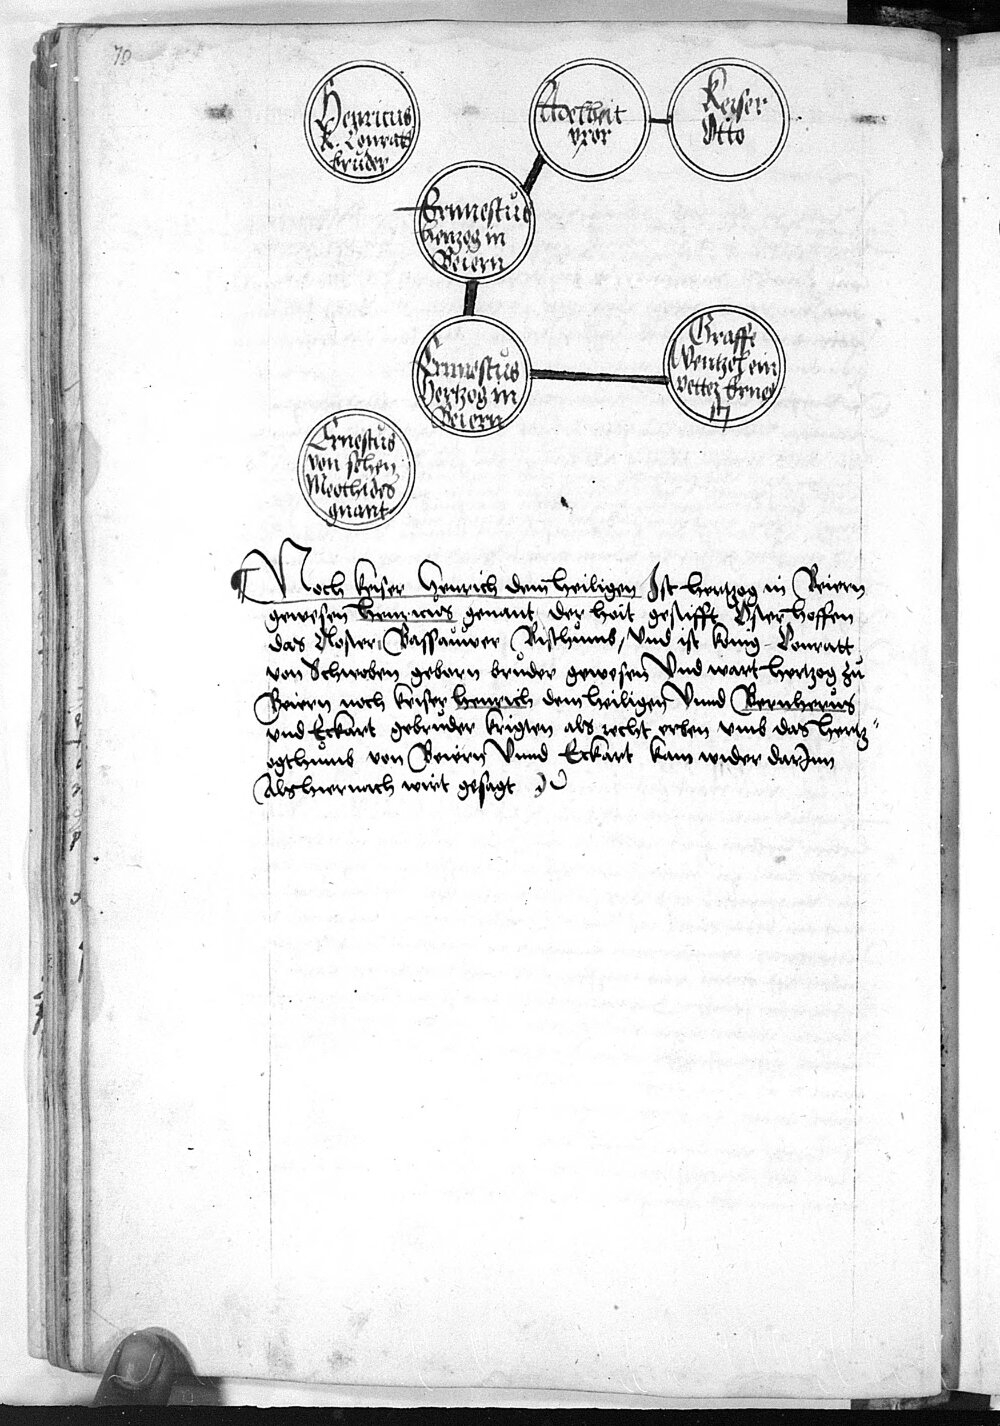 70
Henricus
K. Conrats
bruder
Adelheit
vxor
Keiser
Otto
Ernnestus
hertzog in
Beiern
Ernnestus
Hertzog in
Beiern
Graffe
Wentzel ein
vetter Erne
sti
Ernestus
von
gnant
Noch keiser Henrich dem heiligen Ist hertzog in Beiern
gewesen Henricus genant der hait gestifft Osterhoffen
das Closter Bassauwer Bisthumb / Vnd ist konig Conratt
von Schwoben geborn bruder gewesen Vnd wart hertzog zu
Beiern noch keiser Henrich dem heiligen Vnnd Bernherus
vnd Eckart gebruder krigten als recht erben vmb das hertz
ogthumb von Beiern Vnnd Eckart kam wider darJnn
Als hiernach wirt gesagt